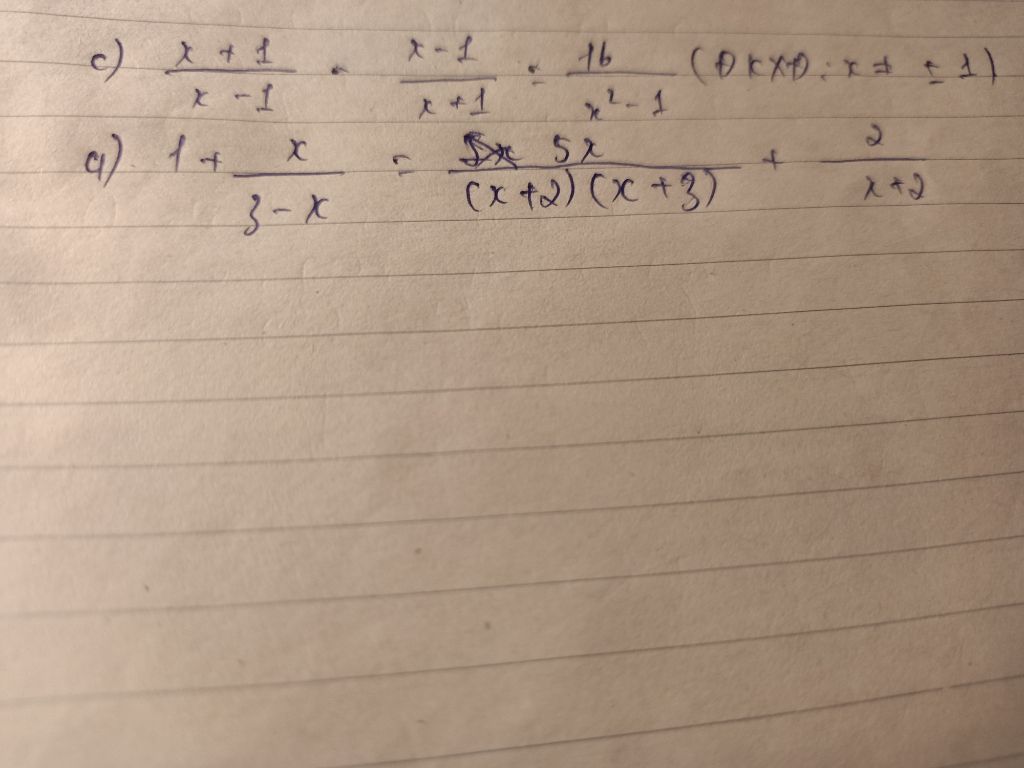 c) (x + 1)/(x - 1) - (x - 1)/(x + 1) = 16/(x² - 1) (ĐKXĐ: x ≠ ± 1)
d) 1 + x/(3 - x) = 5x/((x + 2)(x + 3)) + 2/(x + 2)